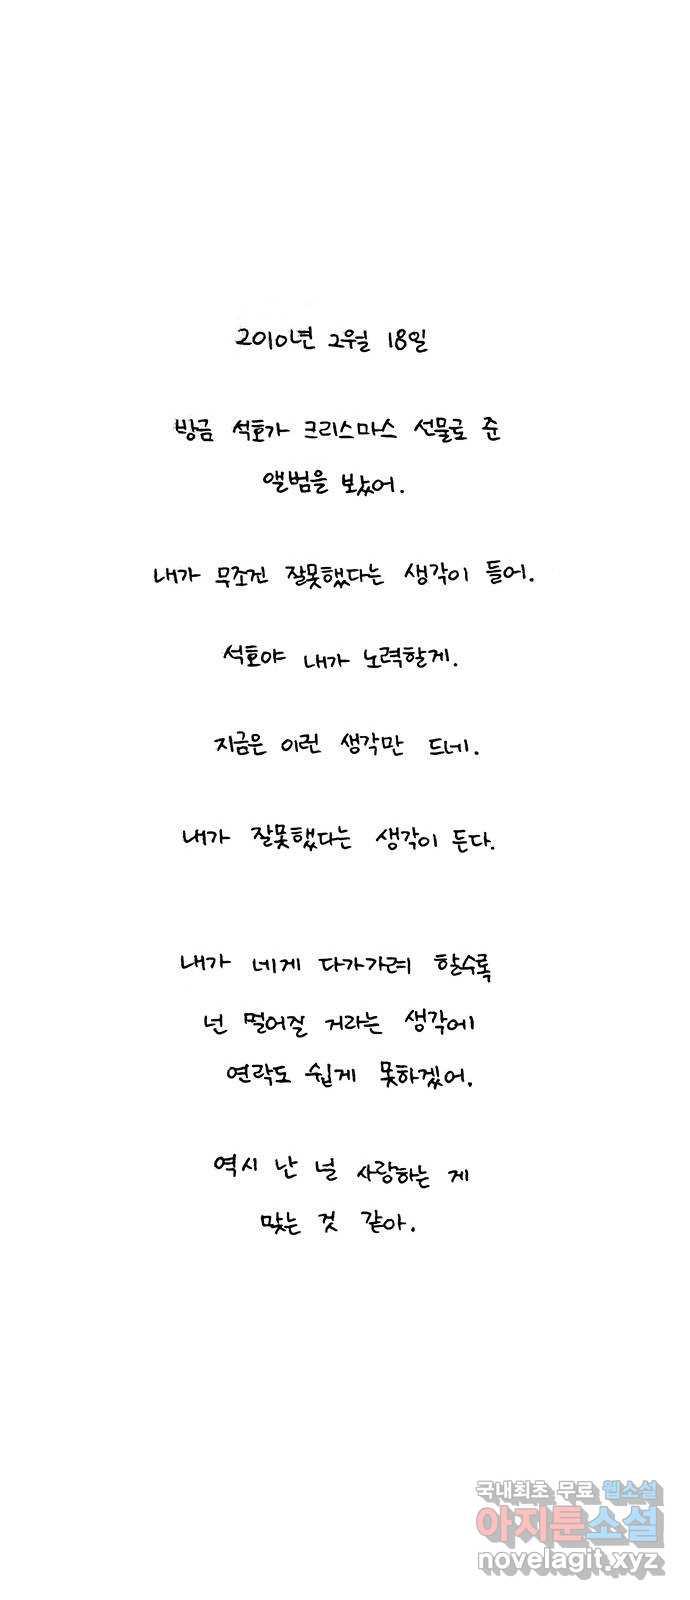 2010년 2월 18일
방금 석호가 크리스마스 선물로 준
앨범을 보았어.
내가 무조건 잘못했다는 생각이 들어.
석호야 내가 노력할게.
지금은 이런 생각만 드네.
내가 잘못했다는 생각이 든다.
내가 네게 다가가려 할수록
넌 멀어질 거라는 생각에
연락도 쉽게 못하겠어.
역시 난 널 사랑하는 게
맞는 것 같아.
국내최초 무료 웹소설
아지툰소설
novelagit.xyz